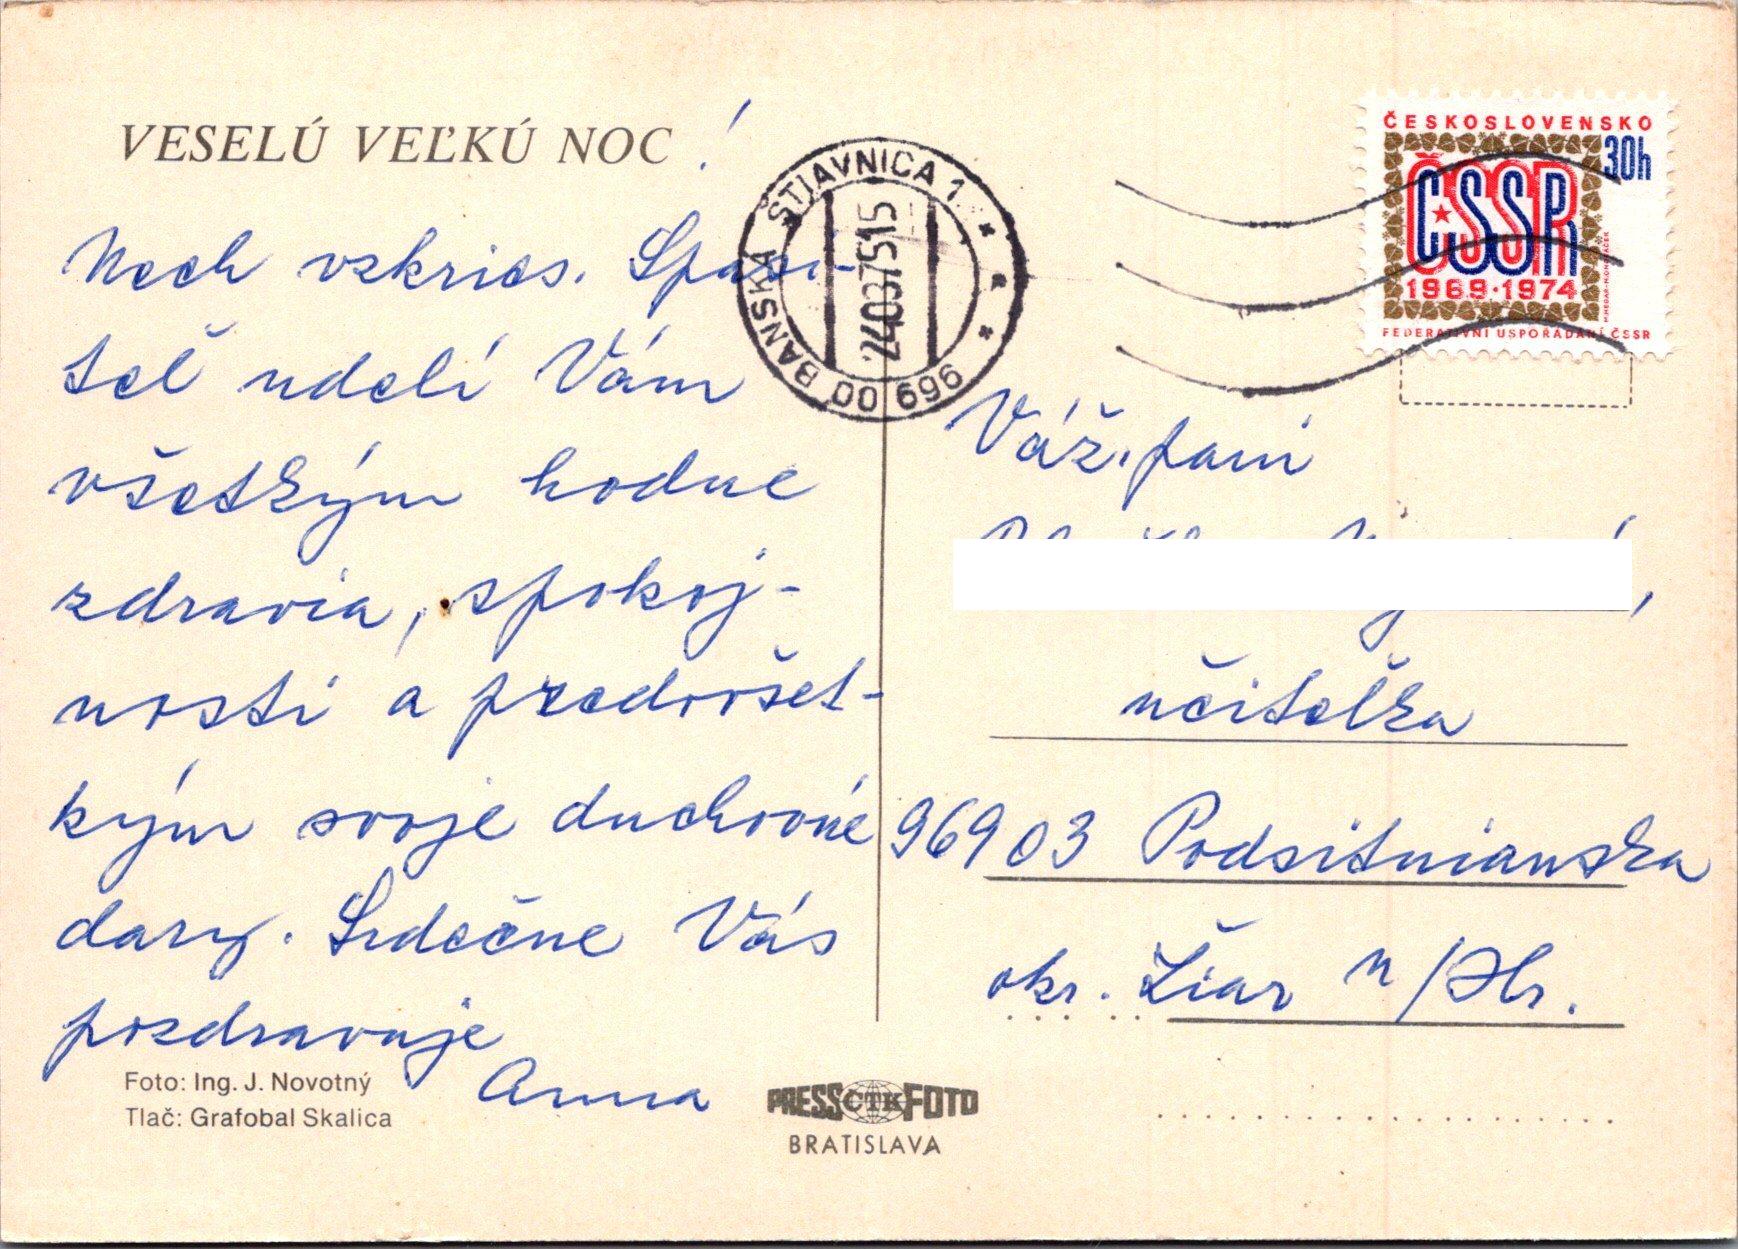 VESELÚ VEĽKÚ NOC !
Nech vzkries. Spasi-
teľ udelí Vám
všetkým hodne
zdravia, spokoj-
nosti a predovšet-
kým svoje duchovné
dary. Srdečne Vás
pozdravuje
Anna
Foto: Ing. J. Novotný
Tlač: Grafobal Skalica
PRESS ČTK FOTO
BRATISLAVA
969 00 BANSKÁ ŠTIAVNICA 1
24037515
ČESKOSLOVENSKO
30h
ČSSR
1969·1974
FEDERATIVNÍ USPOŘÁDÁNÍ ČSSR
Váž. pani
učiteľka
96903 Podsitnianska
okr. Žiar n/Hr.